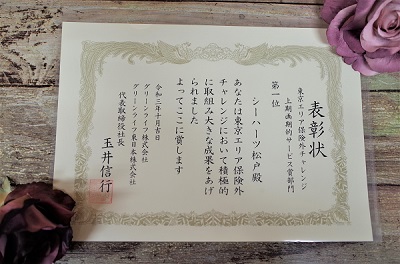 表彰状
東京エリア保険外チャレンジ
上期画期的サービス賞部門
第一位
シーハーツ松戸殿
あなたは東京エリア保険外
チャレンジにおいて積極的
に取組み大きな成果をあげ
られました
よってここに賞します
令和三年十月吉日
グリーンライフ株式会社
グリーンライフ東日本株式会社
代表取締役社長
玉井信行